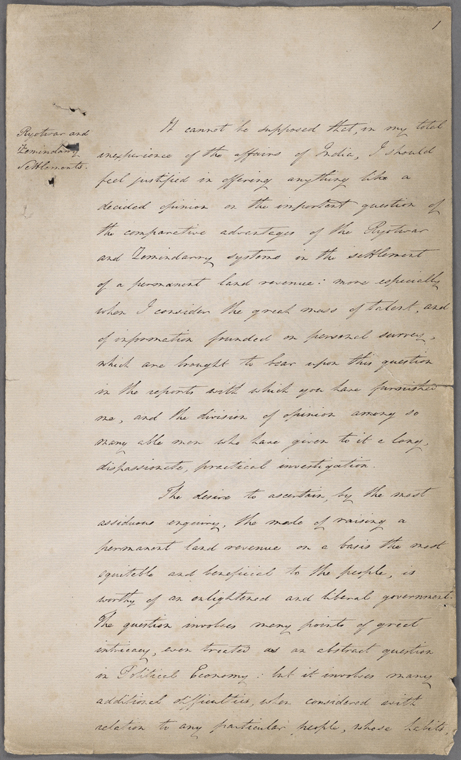 1
Ryotwar and
Zemindarry
Settlements.
It cannot be supposed that, in my total
inexperience of the affairs of India, I should
feel justified in offering anything like a
decided opinion on the important question of
the comparative advantages of the Ryotwar
and Zemindarry systems in the settlement
of a permanent land revenue: more especially
when I consider the great mass of talent, and
of information founded on personal survey,
which are brought to bear upon this question
in the reports with which you have furnished
me, and the division of opinion among so
many able men who have given to it a long,
dispassionate, practical investigation.
The desire to ascertain, by the most
assiduous enquiry, the mode of raising a
permanent land revenue on a basis the most
equitable and beneficial to the people, is
worthy of an enlightened and liberal government.
The question involves many points of great
intricacy, even treated as an abstract question
in Political Economy: but it involves many
additional difficulties, when considered with
relation to any particular people, whose habits,